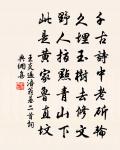 千古詩中老斲輪
久埋玉樹去修文
野人指點青山下
此是黃家魯直墳
王炎過涪翁墓二首詞
典網集